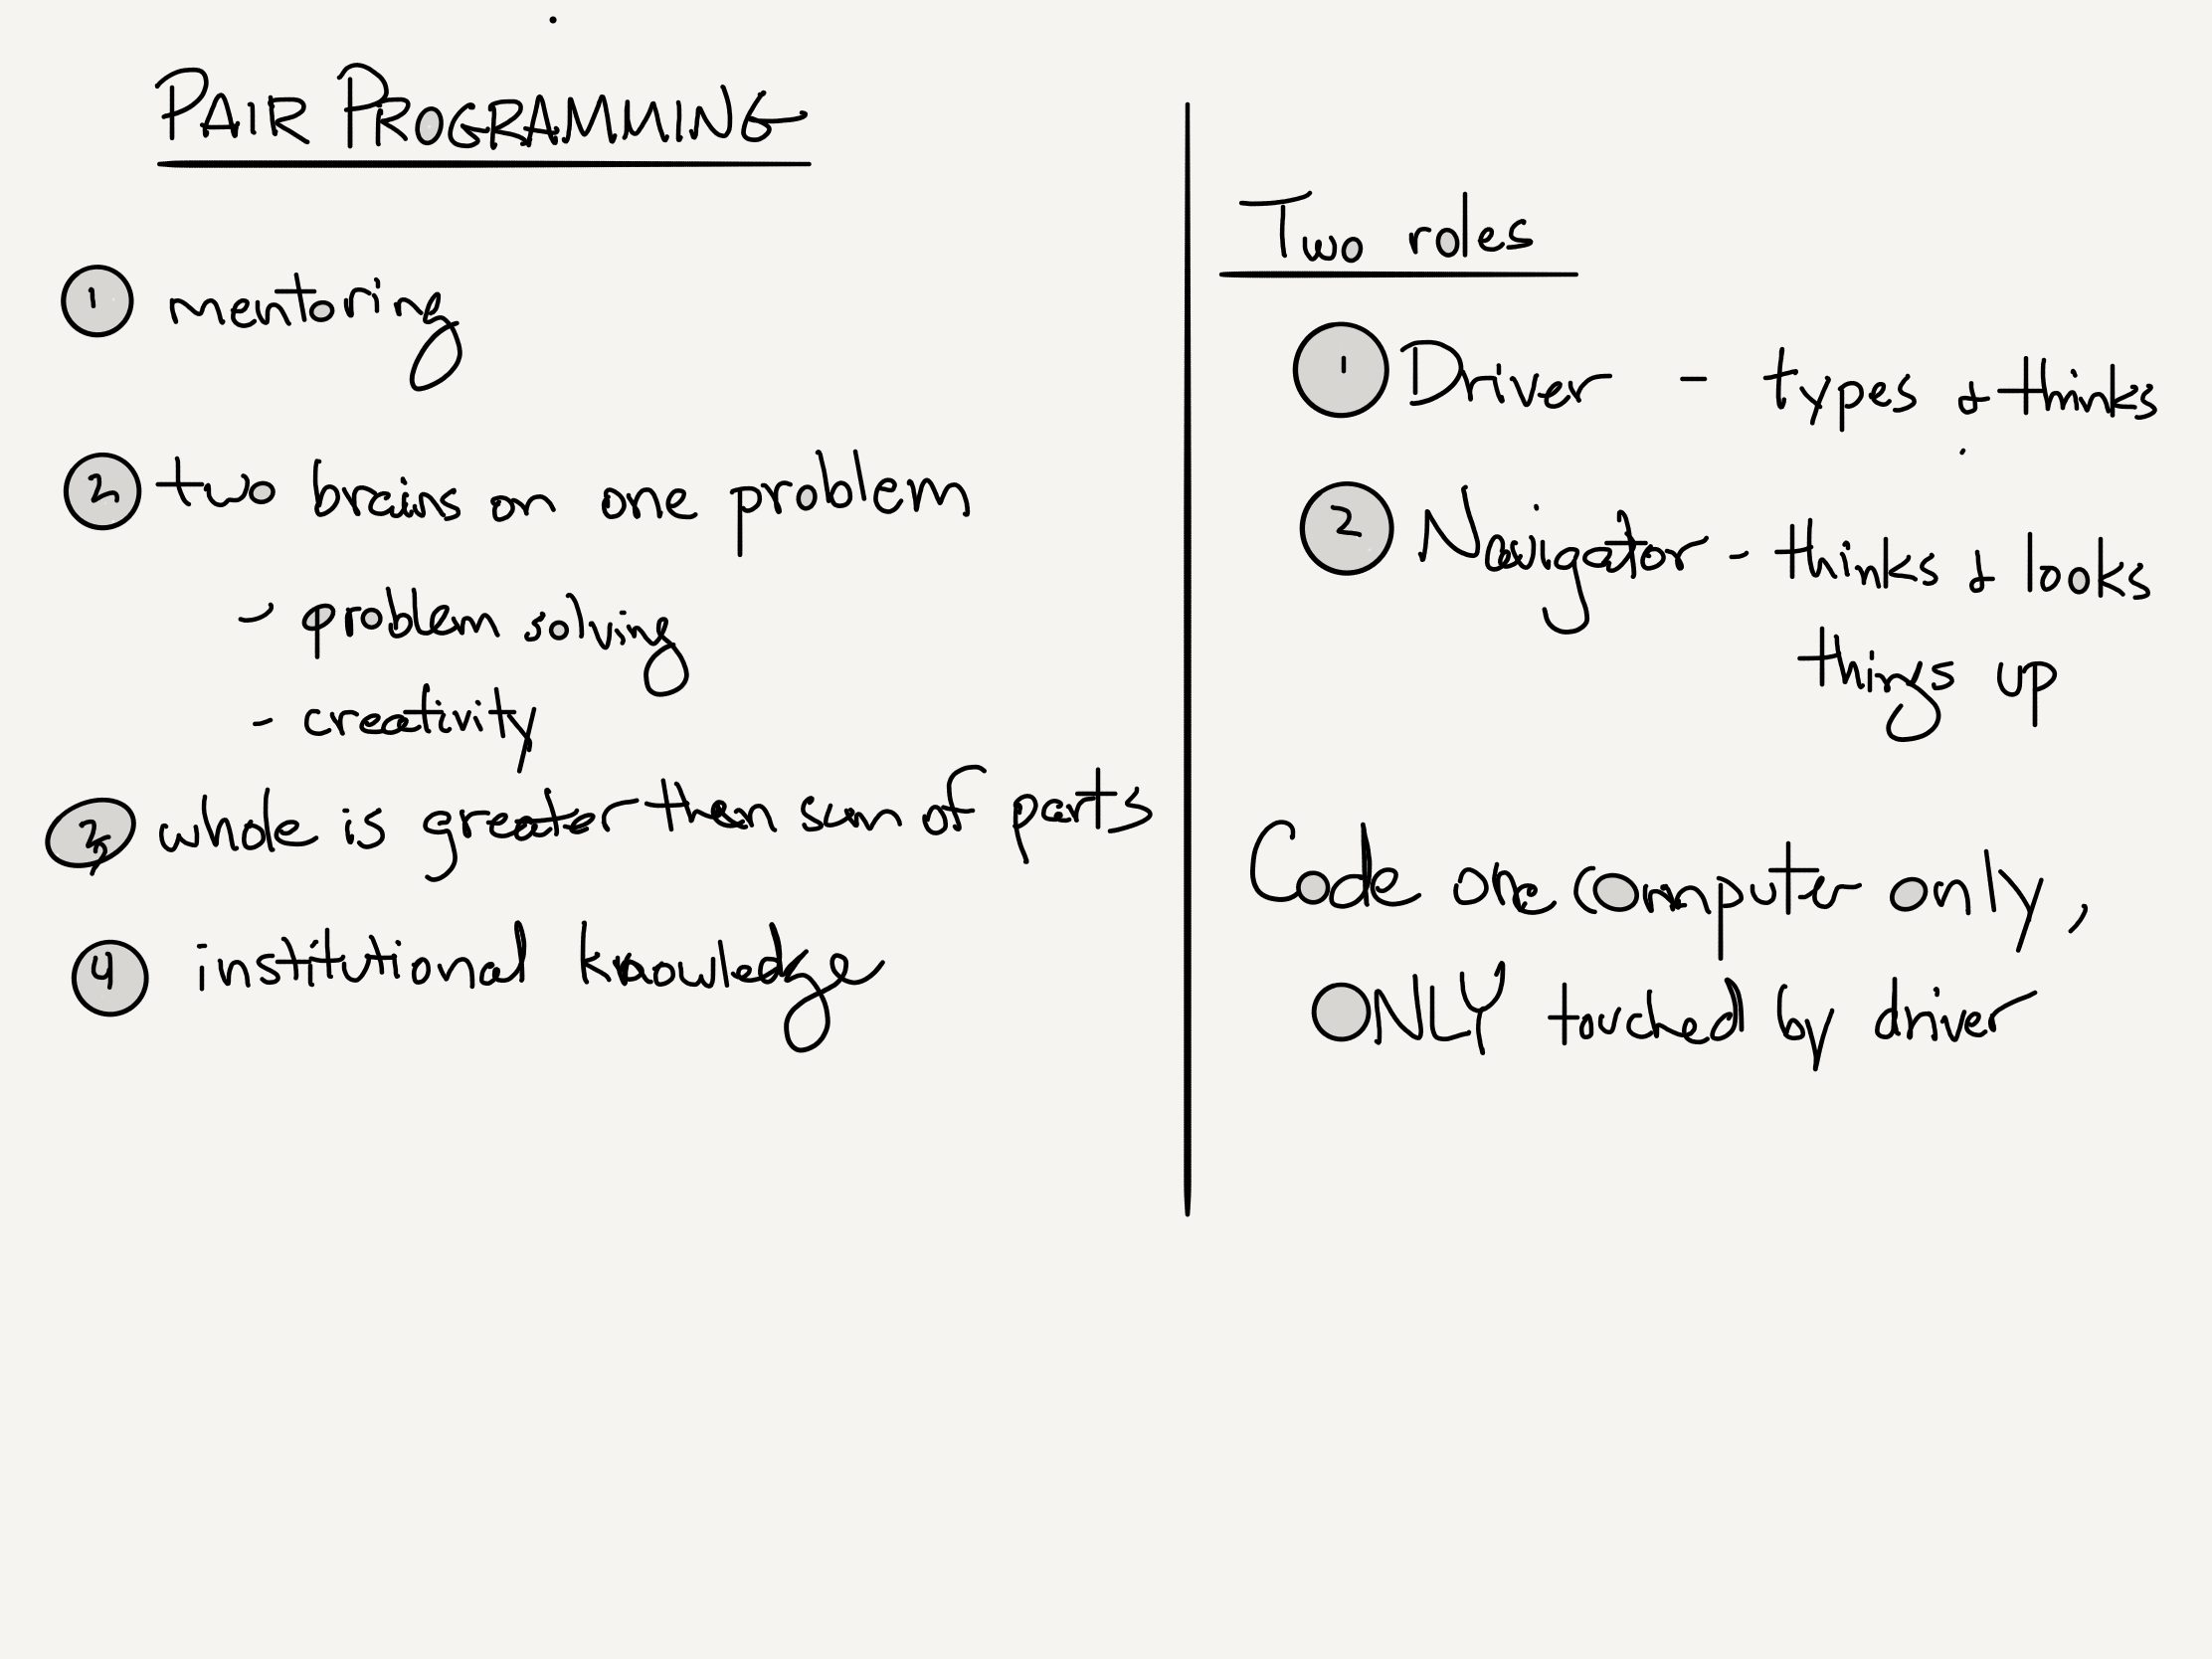 PAIR PROGRAMMING
1 mentoring
2 two brains on one problem
- problem solving
- creativity
3 whole is greater than sum of parts
4 institutional knowledge
Two roles
1 Driver - types & thinks
2 Navigator - thinks & looks
things up
Code one computer only,
ONLY touched by driver